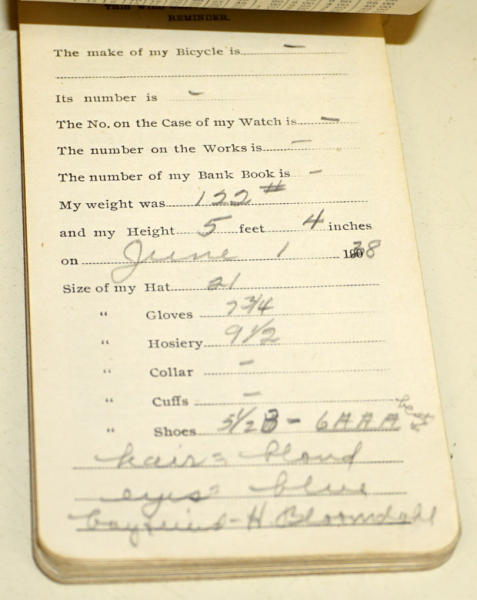 REMINDER.
The make of my Bicycle is -
Its number is -
The No. on the Case of my Watch is -
The number on the Works is -
The number of my Bank Book is -
My weight was 122 #
and my Height 5 feet 4 inches
on June 1 1938
Size of my Hat 21
" Gloves 7 3/4
" Hosiery 9 1/2
" Collar -
" Cuffs -
" Shoes 5 1/2 B - 6 AAA
hair = blond
eyes = blue
boyfriend - H. Bloomdahl